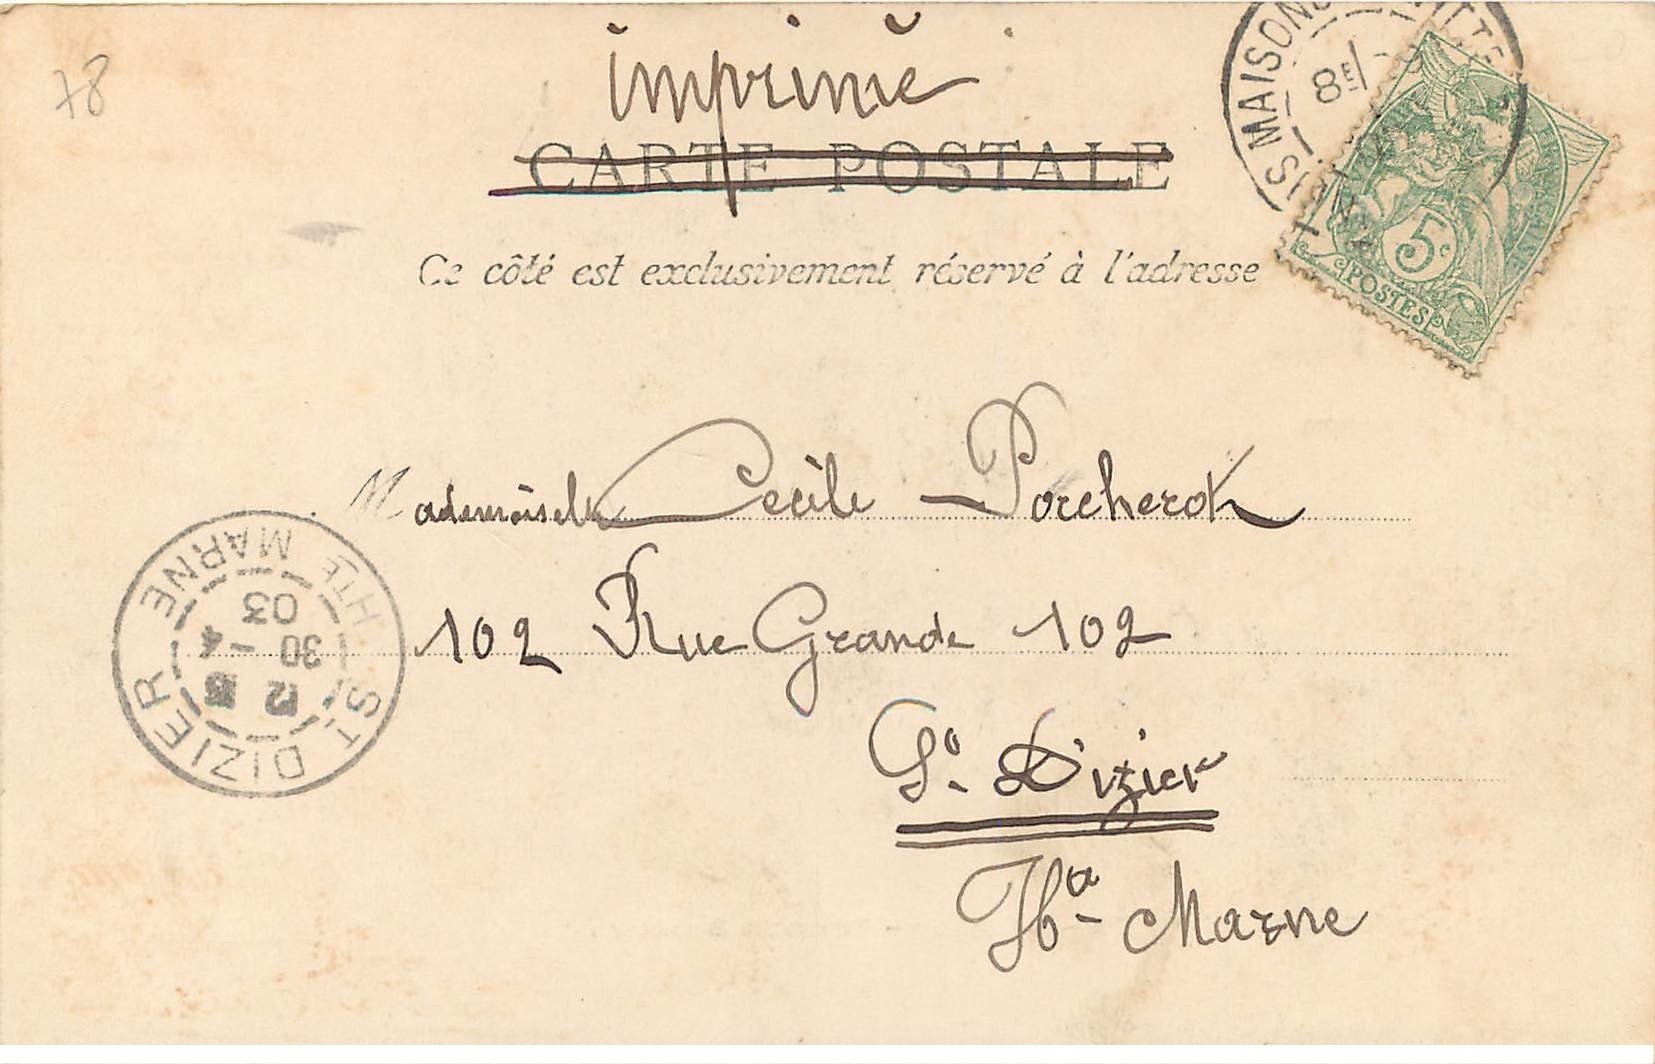 78
imprimé
CARTE POSTALE
Ce côté est exclusivement réservé à l'adresse
MAISONS
8E
5c
POSTES
Mademoiselle Cecile Porcherot
102 Rue Grande 102
St. Dizier
Hte Marne
ST DIZIER
HTE MARNE
12
30 -4
03